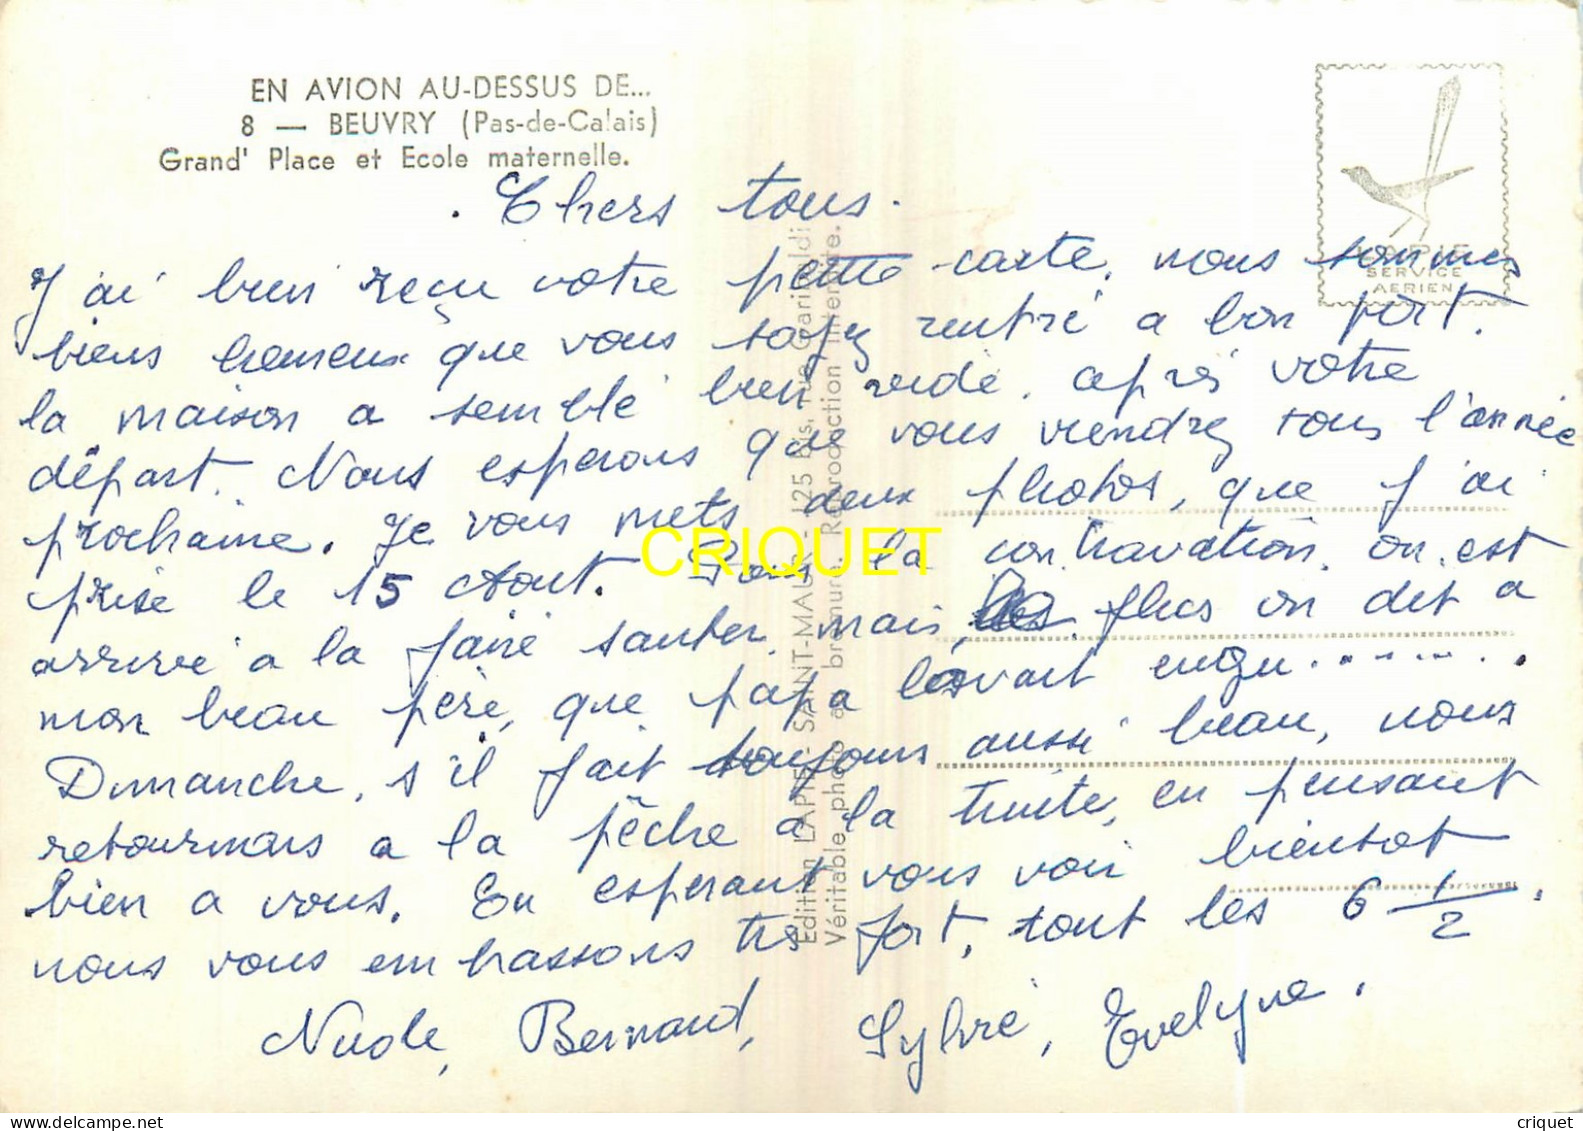 EN AVION AU-DESSUS DE...
8 — BEUVRY (Pas-de-Calais)
Grand' Place et Ecole maternelle.
LAPIE
SERVICE
AERIEN
. Chers tous.
J'ai bien reçu votre petite carte, nous sommes
biens heureux que vous soyez rentré a bon port.
la maison a semblé bien vide, après votre
départ. Nous esperons que vous viendrez tous l'année
prochaine. Je vous mets deux photos, que j'ai
prise le 15 Aout. Pour la contravation, on est
arrivé a la faire sauter, mais, plus on dit a
mon beau père, que papa l'avait . . . . . . .
Dimanche, s'il fait toujours aussi beau, nous
retournons a la pêche a la truite, en pensant
bien a vous. En esperant vous voir bientot
nous vous embrassons très fort, tout les 6 1/2.
Nicole, Bernard, Sylvie, Evelyne.
Edition LAPIE, SAINT-MAUR - 125 bis, rue Garibaldi
Véritable photo au bromure. Reproduction interdite.
CRIQUET
www.delcampe.net
criquet